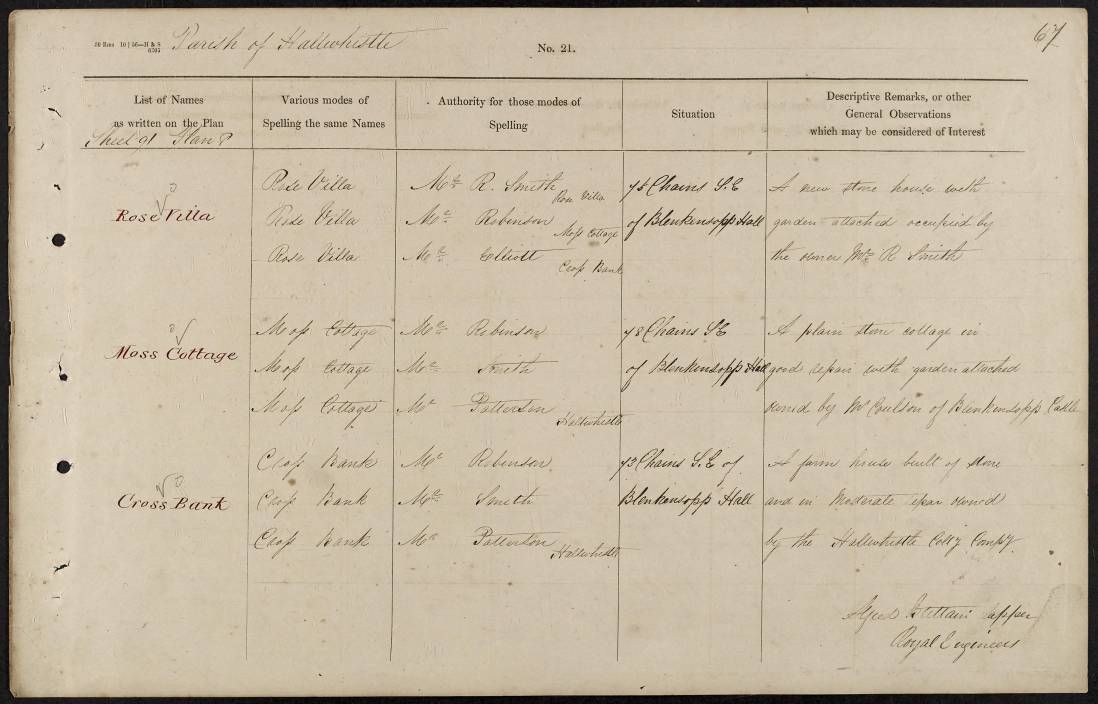 30 Rms 10 | 56—H & S
6705
Parish of Haltwhistle
No. 21.
67
List of Names
as written on the Plan
Various modes of
Spelling the same Names
Authority for those modes of
Spelling
Situation
Descriptive Remarks, or other
General Observations
which may be considered of Interest
Sheet 91 Plan 8
Rose Villa
Rose Villa
Rose Villa
Rose Villa
Mr R. Smith
Rose Villa
Mr Robinson
Moss Cottage
Mr Elliott
Cross Bank
75 Chains S.E
of Blenkensopp Hall
A new stone house with
garden attached occupied by
the owner Mr R Smith
Moss Cottage
Moss Cottage
Moss Cottage
Moss Cottage
Mr Robinson
Mr Smith
Mr Patterson
Haltwhistle
78 Chains S.E
of Blenkensopp Hall
A plain stone cottage in
good repair with garden attached
owned by Mr Coulson of Blenkensopp Castle
Cross Bank
Cross Bank
Cross Bank
Cross Bank
Mr Robinson
Mr Smith
Mr Patterson
Haltwhistle
73 Chains S.E of
Blenkensopp Hall
A farm house built of stone
and in Moderate repair owned
by the Haltwhistle Colly Compy
Brittain Sapper
Royal Engineers